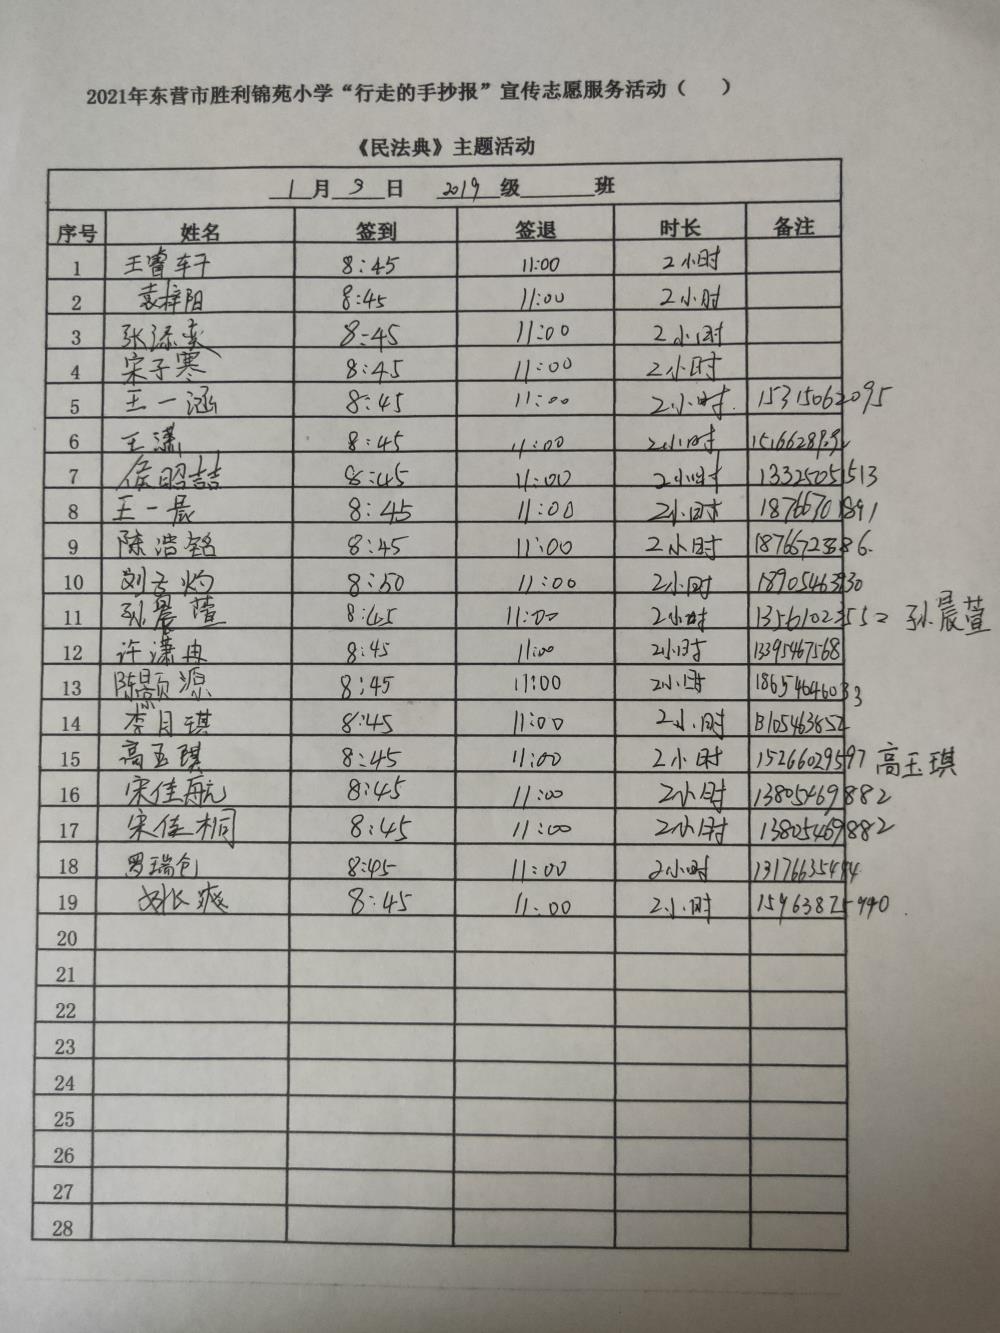 2021年东营市胜利锦苑小学“行走的手抄报”宣传志愿服务活动（ ）
《民法典》主题活动
1月3日 2019级 班
序号 姓名 签到 签退 时长 备注
1 王睿轩 8:45 11:00 2小时
2 袁梓阳 8:45 11:00 2小时
3 8:45 11:00 2小时
4 宋子寒 8:45 11:00 2小时
5 王一涵 8:45 11:00 2小时 15315062095
6 王潇 8:45 11:00 2小时
7 侯昭喆 8:45 11:00 2小时 13325051513
8 王一晨 8:45 11:00 2小时 18766701891
9 陈浩铭 8:45 11:00 2小时
10 8:50 11:00 2小时 18905463930
11 孙晨萱 8:45 11:00 2小时 13561022552 孙晨萱
12 许潇冉 8:45 11:00 2小时 13395467568
13 陈颢源 8:45 11:00 2小时 18654646033
14 李月琪 8:45 11:00 2小时
15 高玉琪 8:45 11:00 2小时 15266029597 高玉琪
16 宋佳航 8:45 11:00 2小时 13805469882
17 宋佳桐 8:45 11:00 2小时 13805469882
18 8:45 11:00 2小时 13176635484
19 8:45 11:00 2小时 15963875940
20
21
22
23
24
25
26
27
28